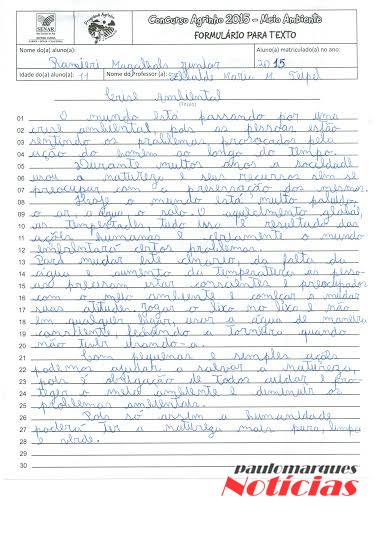 SENAR
Concurso Agrinho 2015 – Meio Ambiente
FORMULÁRIO PARA TEXTO
Nome do(a) aluno(a):
Aluno(a) matriculado(a) no ano:
Magalhães Junior
2015
Idade do(a) aluno(a): 11
Nome do Professor (a):
Maria M.
Crise Ambiental
(Título)
01 O mundo está passando por uma
02 crise ambiental, pois as pessoas estão
03 sentindo os problemas provocados pela
04 ação do homem ao longo do tempo.
05 Durante muitos anos a sociedade
06 usou a natureza e seus recursos sem se
07 preocupar com a preservação dos mesmos.
08 Hoje o mundo está muito poluído
09 o ar, a água, o solo. O aquecimento global,
10 as tempestades tudo isso é resultado das
11 ações humanas certamente o mundo
12 enfrentará certos problemas.
13 Para mudar este cenário da falta da
14 água e aumento da temperatura as pesso-
15 as precisam estar conscientes e preocupados
16 com o meio ambiente e começar a mudar
17 suas atitudes, jogar o lixo no lixo e não
18 em qualquer lugar, usar a água de maneira
19 consciente, fechando a torneira quando
20 não tiver usando-a.
21 Com pequenas e simples ações
22 podemos ajudar a salvar a natureza,
23 pois é obrigação de todos cuidar e pro-
24 teger o meio ambiente e diminuir os
25 problemas ambientais.
26 Pois só assim a humanidade
27 poderá ter a natureza mais pura, limpa
28 e verde.
29
30
paulomarques
Notícias